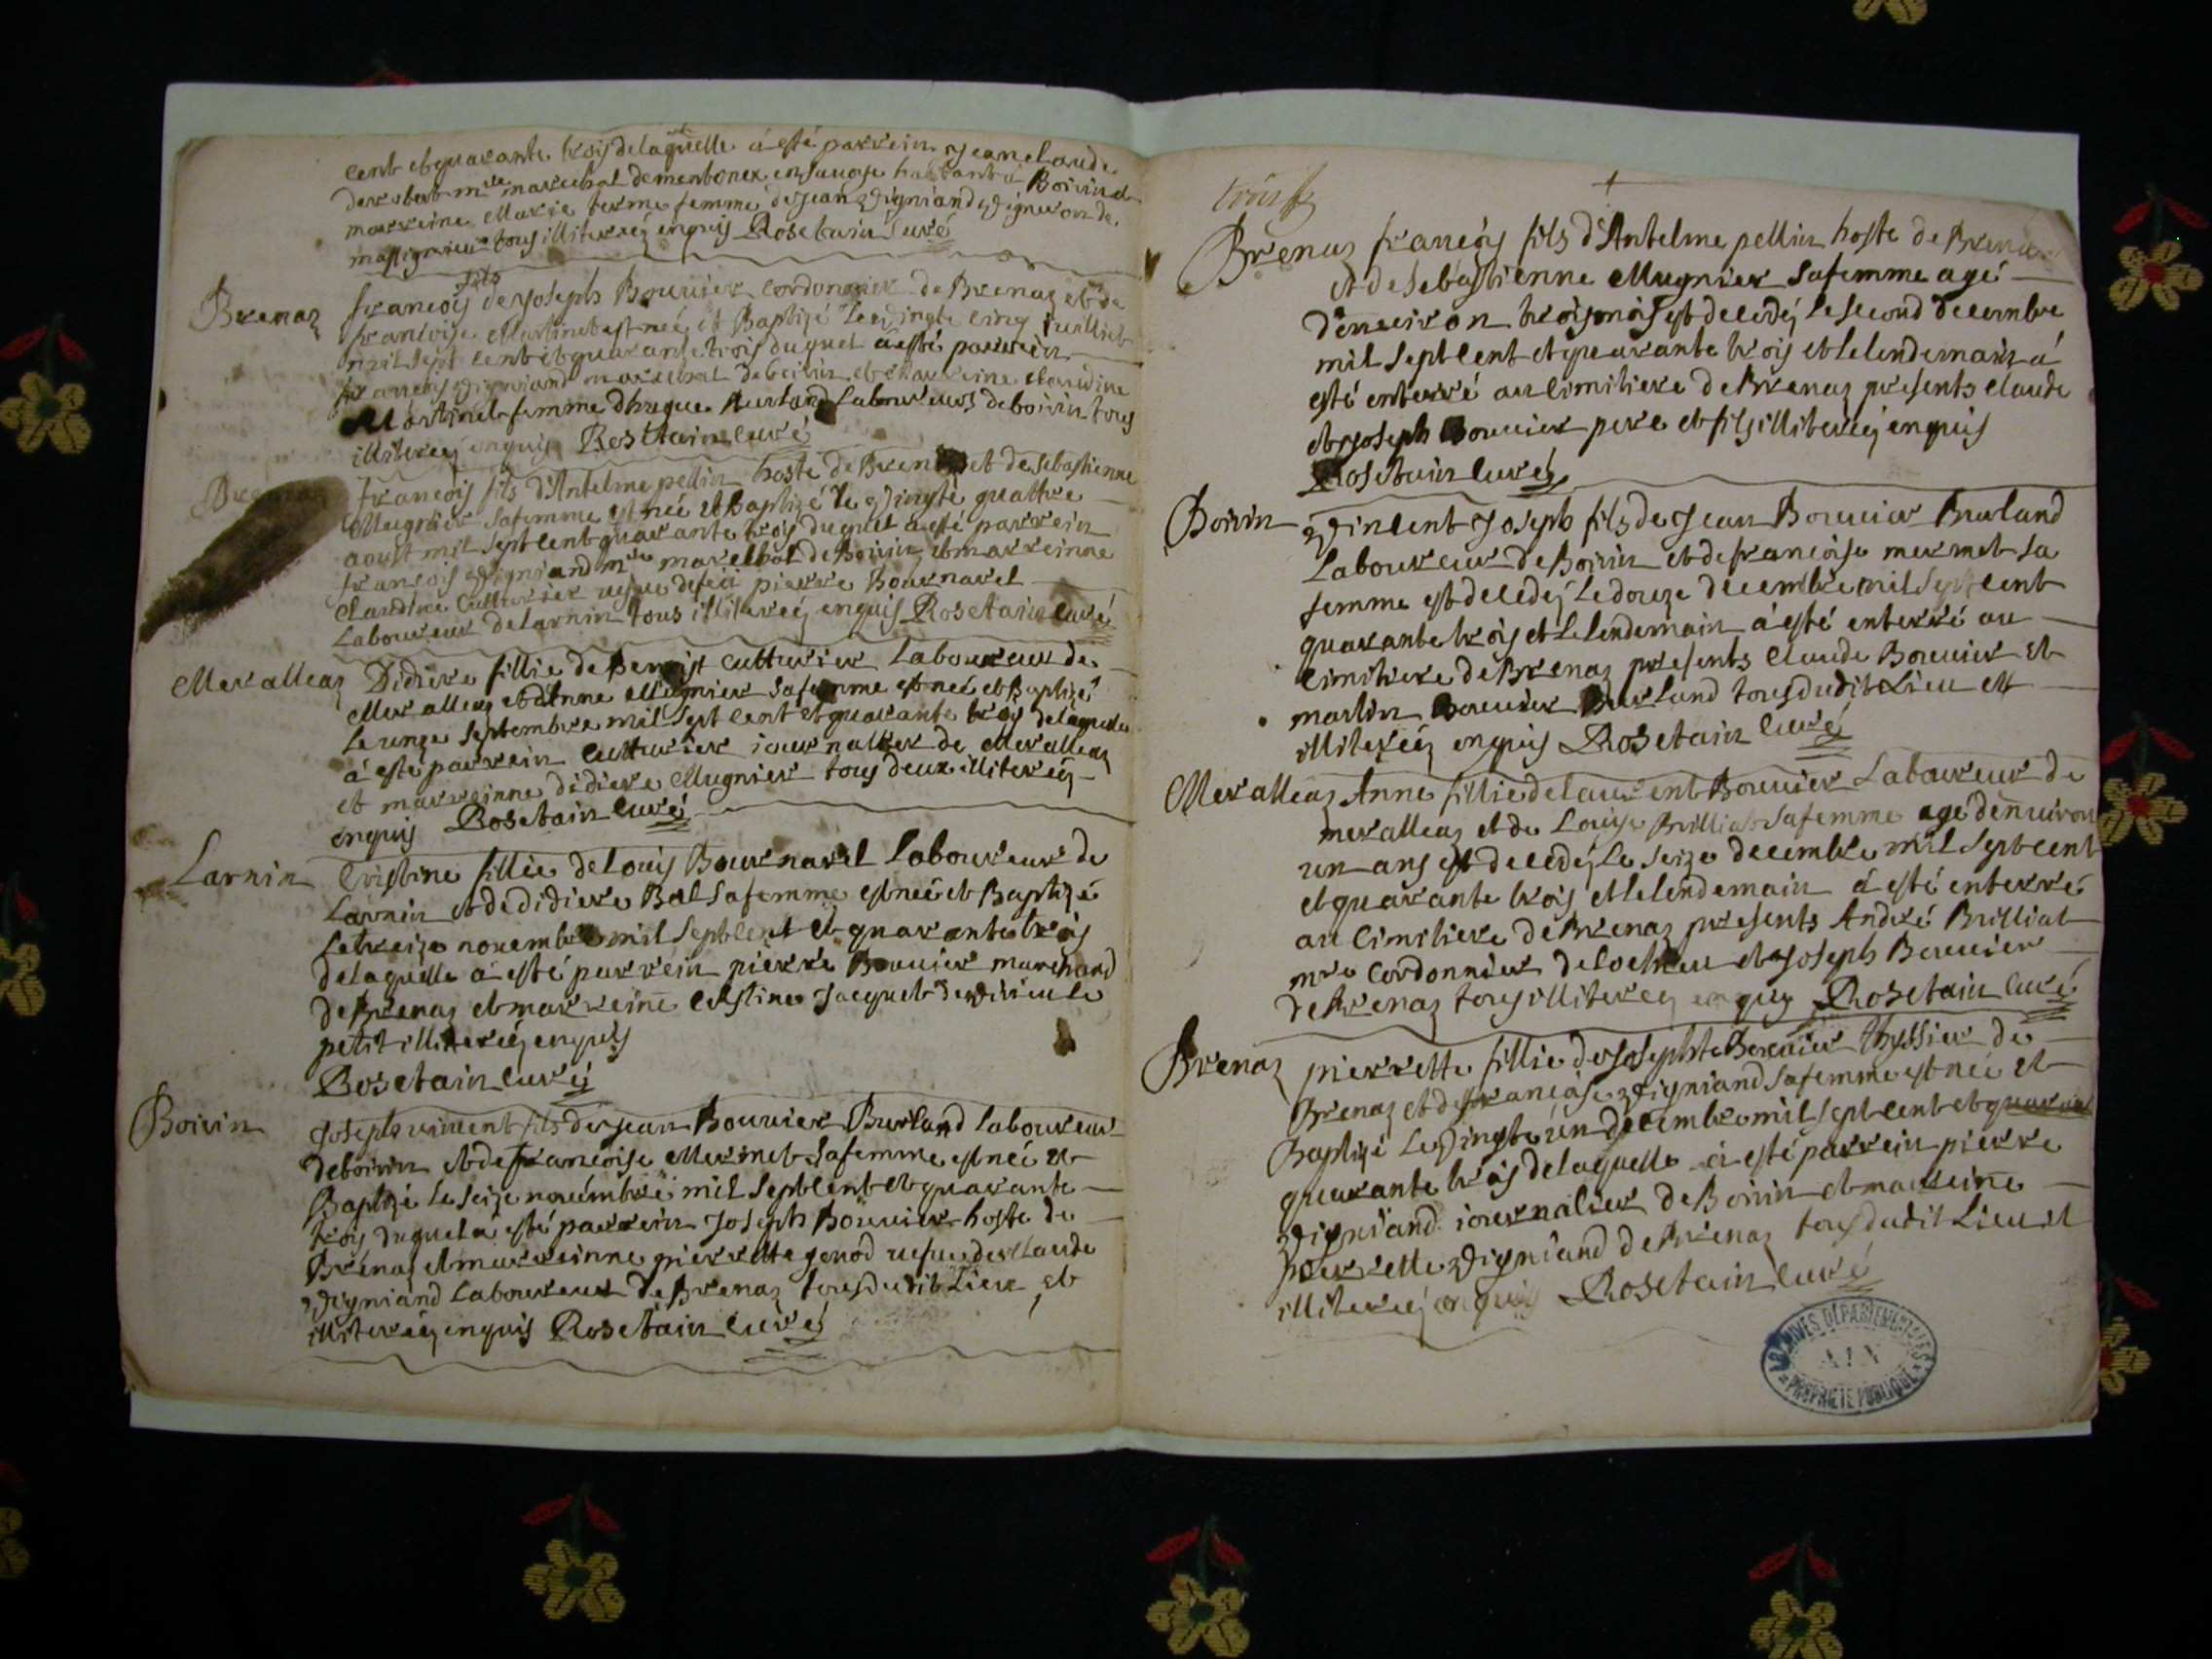 cent et quarante trois de laquelle a esté parrein Jean Claude
mre marechal de mentonex en Sauoye habitant a Boirin et
marreine Marie terme femme de Jean Vigniand Vigneron de
massignieu tous illiterez enquis Rosetain Curé
Brenaz
françois fils de Joseph Bouuier Cordonnier de Brenaz et de
françoise Martinet est neé et Baptizé le Vingte cinq Juillet
mil sept cent et quarante trois duquel a esté parrein
françois Vigniand marechal de boirin et marreine Claudine
Martinet femme d'hugue Burland Laboureurs de boirin tous
illiterez enquis Rosettain curé
Brenaz
françois fils d'Antelme pellin hoste de Brenaz et de Sebastienne
Mugnier Safemme est neé et Baptizé le Vingte quattre
aoust mil Sept cent quarante trois duquel a esté parrein
françois Vigniand mre marechal de Boirin et marreinne
Claudine Cutturier uefue de feu pierre Bournarel
Laboureur de Larnin tous illiterez enquis Rosetain curé
Meralleaz
Didiere fillie de Benoist Cutturier Laboureur de
Meralleaz et d'Anne Mugnier Safemme est neé et Baptizé
le unze Septembre mil Sept cent et quarante trois delaquelle
á esté parrein Cutturier iournallier de Meralleaz
et marreinne didiere Mugnier tous deux illiterez
enquis Rosetain Curé
Larnin
Cristine fillie de Louis Bournarel Laboureur de
Larnin et de didiere Bal Safemme est neé et Baptizé
Le treize nouembre mil Sept cent et quarante trois
delaquelle a esté parrein pierre Bouuier marchand
de Brenaz et marreine Cristine Jacquet de Virieu le
petit illiterez enquis
Rosetain curé
Boirin
Joseph vincent fils de Jean Bouuier Burland Laboureur
de boirin et de françoise Mermet Safemme est neé et
Baptizé le Seize nouembre mil Sept cent et quarante
trois duquel a esté parrein Joseph Bouuier hoste de
Brénaz et marreinne pierrette genod uefue de Claude
Vigniand Laboureur de Brenaz tous dudit Lieu et
illiterez enquis Rosetain curé
trois
Brenaz
françois fils d'Antelme pellin hoste de Brenaz
et de Sebastienne Mugnier Safemme agé
d'enuiron trois mois est decedéz le Second decembre
mil Sept cent et quarante trois et le lendemain á
esté enterré au cimitiere de Brenaz presents Claude
et Joseph Bouuier pere et fils illiterez enquis
Rosetain curé
Boirin
Vincent Joseph fils de Jean Bouuier Burland
Laboureur de Boirin et de françoise mermet Sa
femme est decedéz Le douze decembre mil Sept cent
quarante trois et Le lendemain á esté enterré au
cimitiere de Brenaz presents Claude Bouuier et
martin Bouuier Burland tous dudit Lieu et
illiterez enquis Rosetain Curé
Meralleaz
Anne fillie de laurent Bouuier Laboureur de
meralleaz et de Louise Brilliat Safemme agé d'enuiron
un ans est decedéz Le Seize decembre mil Sept cent
et quarante trois et le lendemain á esté enterré
au Cimitiere de Brenaz presents André Brilliat
mre Cordonnier de Locheu et Joseph Bouuier
de Brenaz tous illiterez enquis Rosetain curé
Brenaz
pierrette fillie de Josephte Bouuier thyssier de
Brenaz et de françoise Vigniand Safemme est neé et
Baptizé Le Vingte un decembre mil sept cent et quarant
quarante trois delaquelle a esté parrein pierre
Vigniand iournalier de Boirin et marreine
pierrette Vigniand de Brenaz tous dudit Lieu et
illiterez enquis Rosetain curé
ARCHIVES DÉPARTEMENTALES
AIN
PROPRIÉTÉ PUBLIQUE